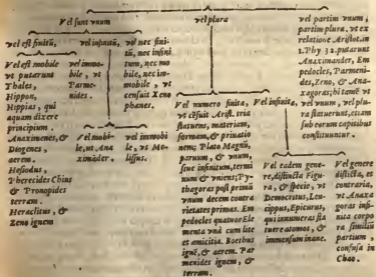 Vel sunt vnum
vel plura
vel partim vnum,
partim plura, vt ex
relatione Aristot. in
1. Phy 32. putarunt
Anaximander, Em
pedocles, Parmeni-
des, Zeno, & Ana
xagoras; bi temē vt
vel vnum, vel plu
ra statuerunt, etiam
sub eorum capitibus
constituuntur.
vel finitū,
vel infinitū,
vel nec fini-
tum, nec infini
tum, nec mo
bile, nec im-
mobile, vt
censuit Xeno
phanes.
Vel est mobile
vt putarunt
Thales,
Hippon,
Hippias, qui
aquam dixere
principium.
Anaximenes, &
Diogenes,
aerem.
Hesiodus,
Pherecides Chius
& Tronopides
terram.
Heraclitus, &
Zeno ignem
vel immo-
bile, vt
Parme-
nides.
Vel mobi-
le, vt Ana
ximāder.
vel immobi
le, vt Me-
lissus.
Vel numero finita,
vt cēsuit Arist. tria
statuens, materiam,
formam, & priuatio
nem; Plato Magnū,
paruum, & vnum,
siue infinitum, termi
num & vniens; Py-
thagoras post primā
vnum decem contra
rietates primas. Em
pedocles quatuor Ele
menta vnà cum lite
et amicitia. Boethus
ignē, & aerem. Par
menides ignem, &
terram.
Vel infinita,
Vel eodem gene
re, distincta Figu
ra, & specie, vt
Democritus, Leu
cippus, Epicurus,
qui innumeras sta
tuere atomos, &
immensum inane.
Vel genere
distincta, et
contraria,
vt Anaxa
goras infi-
nita corpo
ra similiū
partium,
confusa in
Chao.